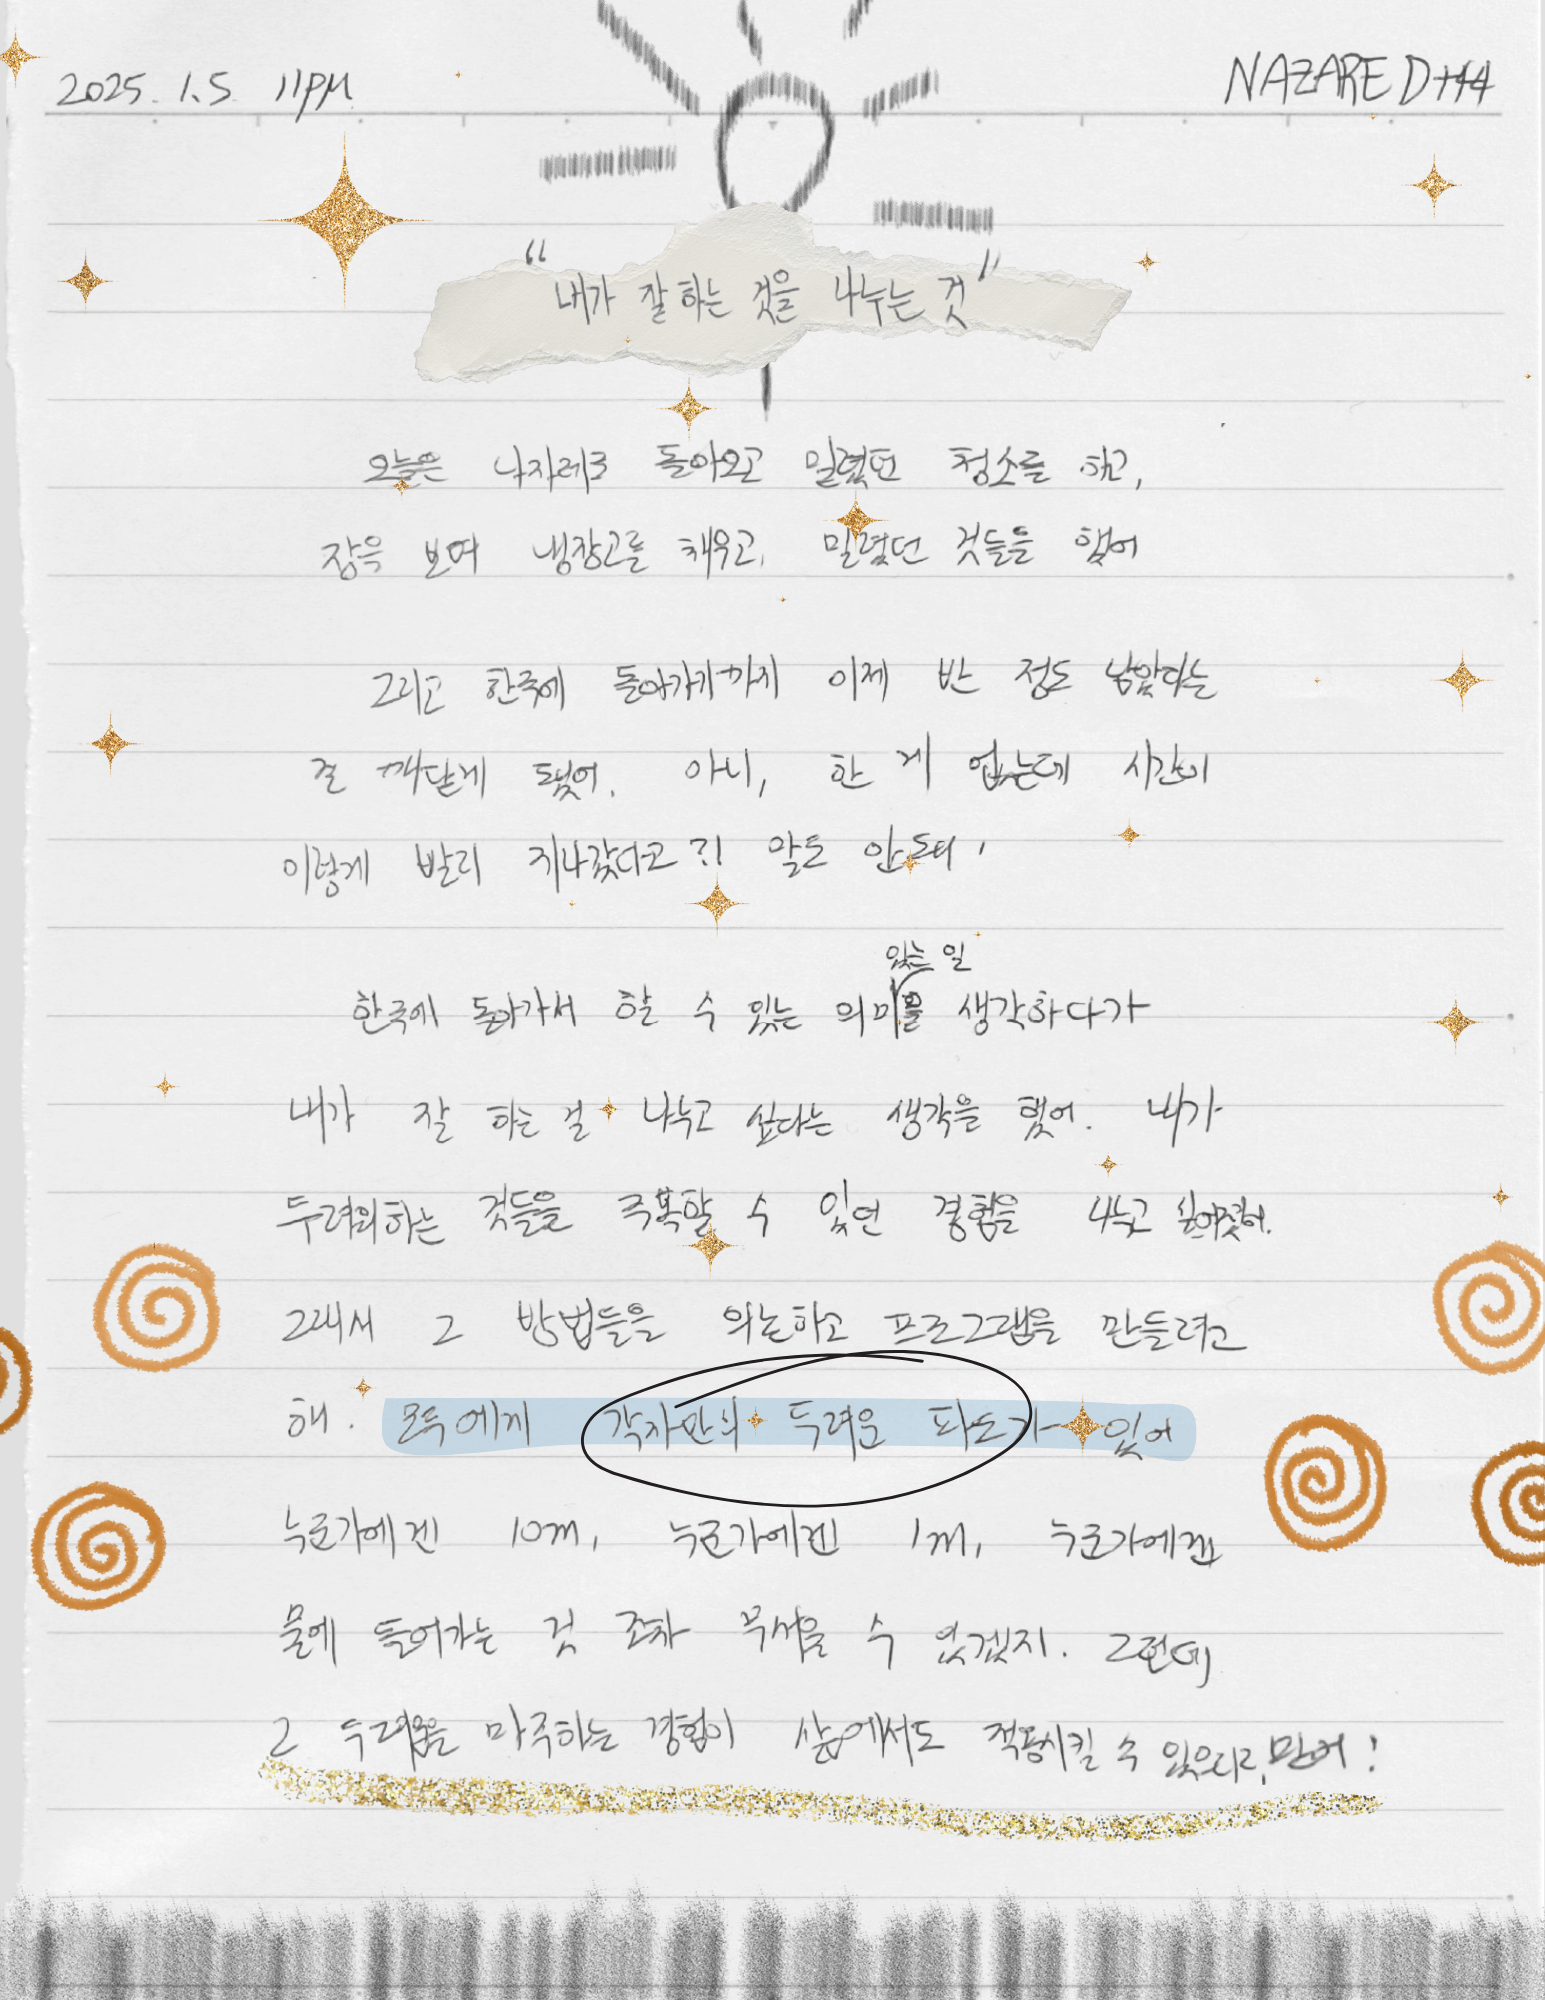 2025. 1.5 11PM
NAZARE D+44
"내가 잘 하는 것을 나누는 것"
오늘은 나자레로 돌아오고 밀렸던 청소를 하고,
장을 보며 냉장고를 채우고, 밀렸던 것들을 했어
그리고 한국에 돌아가기까지 이제 반 정도 남았다는
걸 깨닫게 됐어. 아니, 한 게 없는데 시간이
이렇게 빨리 지나갔다고?! 말도 안돼!
있는 일
한국에 돌아가서 할 수 있는 의미를 생각하다가
내가 잘 하는 걸 나누고 싶다는 생각을 했어. 내가
두려워하는 것들을 극복할 수 있던 경험을 나누고 싶어졌어.
그래서 그 방법들을 의논하고 프로그램을 만들려고
해. 모두에게 각자만의 두려운 파도가 있어
누군가에겐 10m, 누군가에겐 1m, 누군가에겐
물에 들어가는 것 조차 무서울 수 있겠지. 그런데
그 두려움을 마주하는 경험이 삶에서도 적용시킬 수 있으리라 믿어!